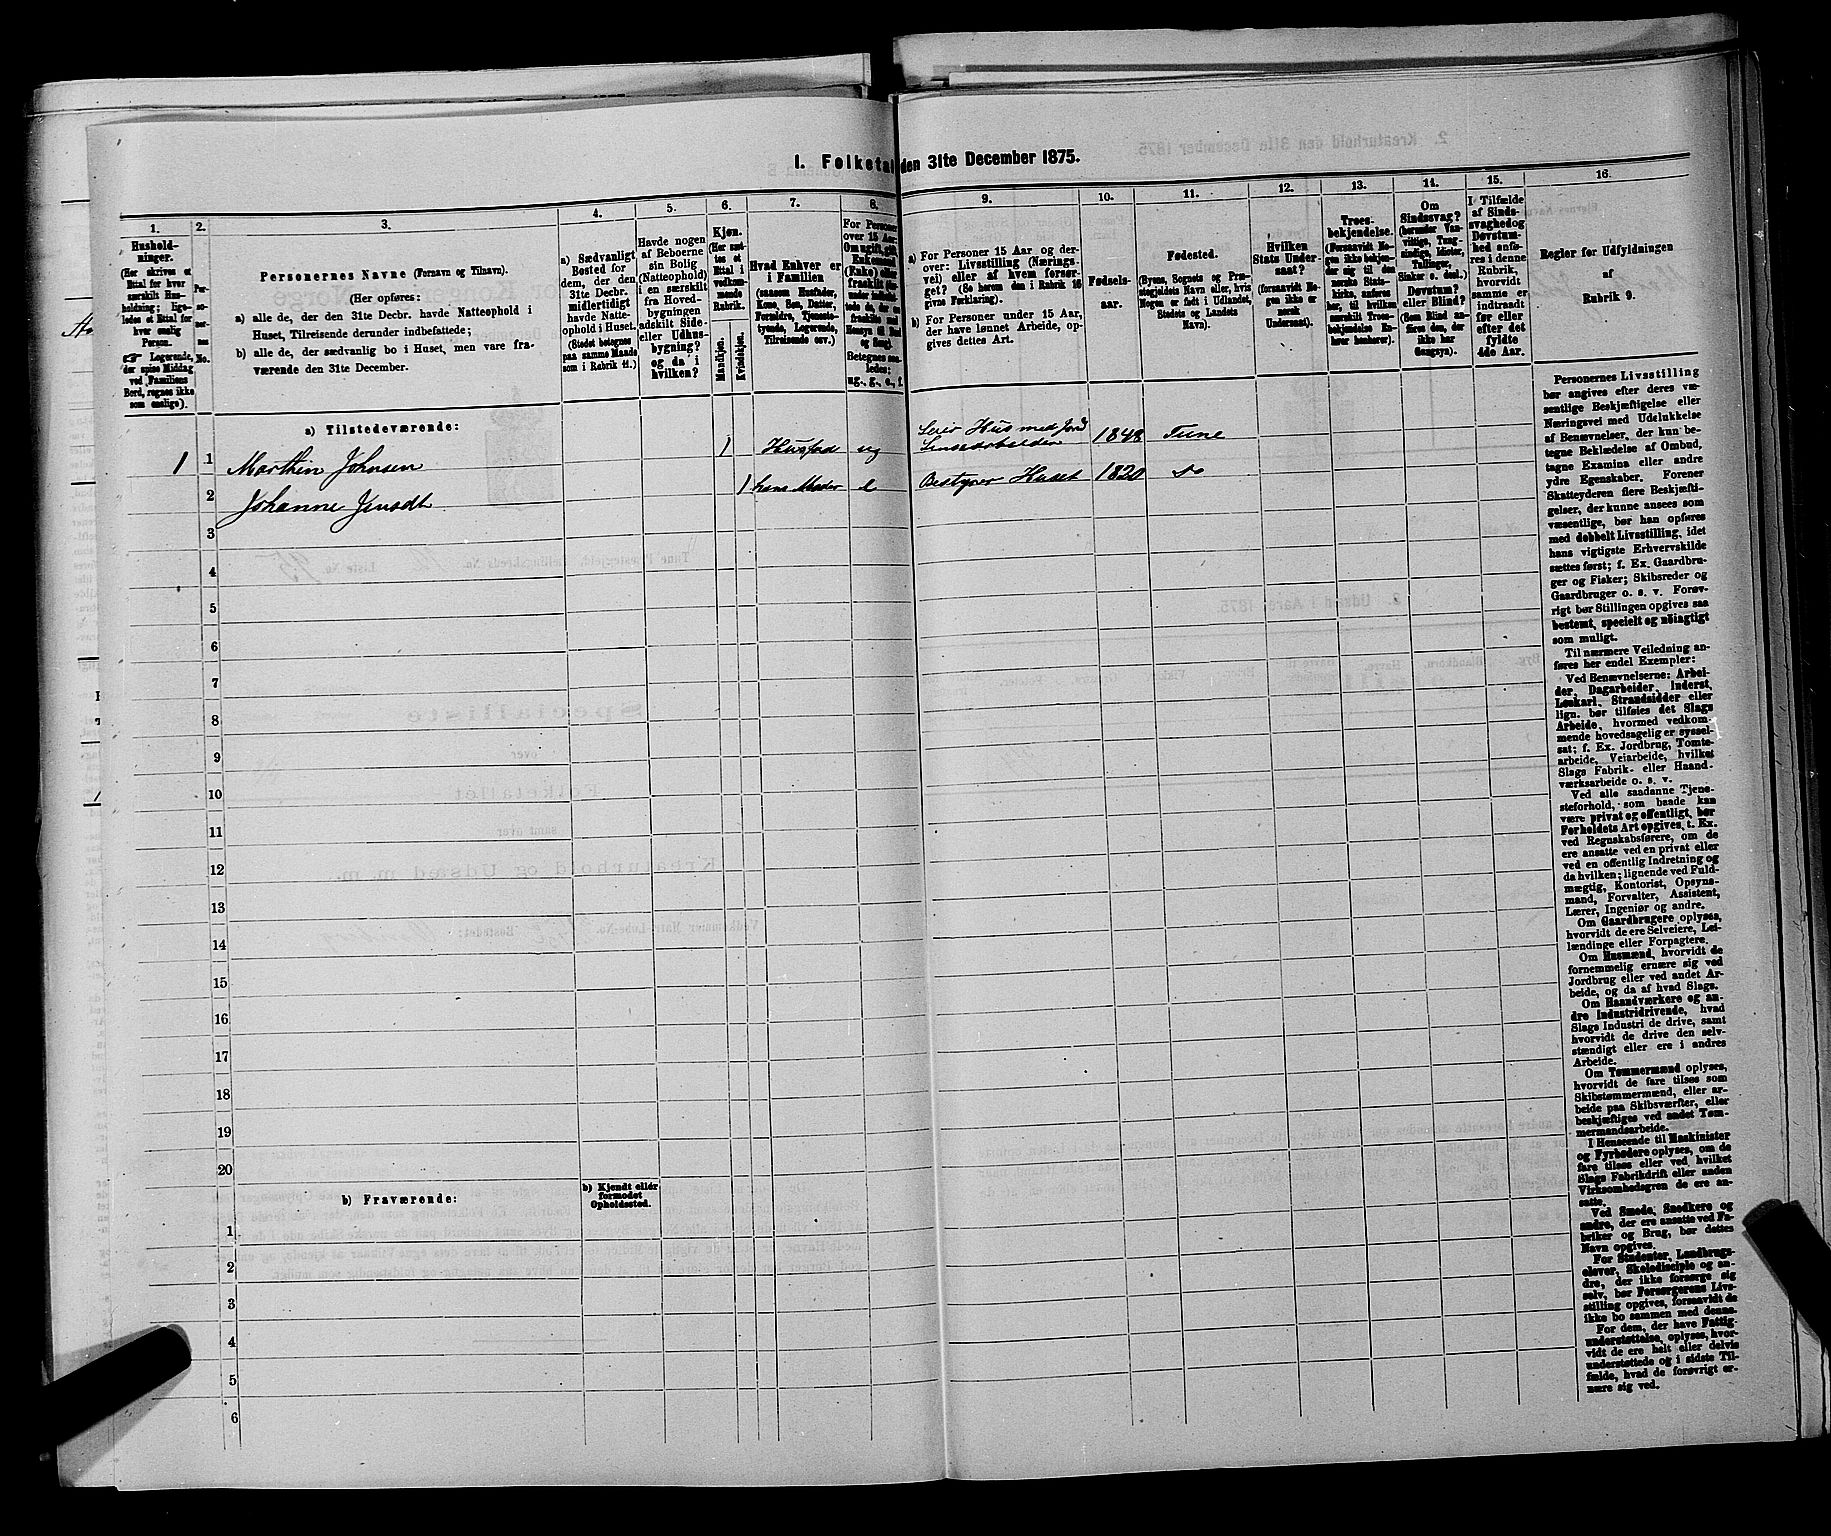 1. Folketal den 31te December 1875.
1.
Hushold-
ninger.
(Her skrives et
Ettal for hver
særskilt Hus-
holdning; lige-
ledes et Ettal for
hver enslig
Person.
☞ Logerende,
der spise Middag
ved Familiens
Bord, regnes ikke
som enslige).
2.
Per-
so-
ner-
nes
No.
3.
Personernes Navne (Fornavn og Tilnavn).
(Her opføres:
a) alle de, der den 31te Decbr. havde Natteophold i
Huset, Tilreisende derunder indbefattede;
b) alle de, der sædvanlig bo i Huset, men vare fra-
værende den 31te December.
4.
a) Sædvanligt
Bosted for
dem, der den
31te Decbr.
midlertidigt
havde Natte-
ophold i Huset.
(Stedet betegnes
paa samme Maade
som i Rubrik 11.)
5.
Havde nogen
af Beboerne
sin Bolig
(Natteophold)
i en særskilt
fra Hoved-
bygningen
adskilt Side-
eller Udhus-
bygning?
og da i
hvilken?
6.
Kjøn.
(Her sæt-
tes et
Ettal i
vedkom-
mende
Rubrik.
Mandkjøn.
Kvindekjøn.
7.
Hvad Enhver er
i Familien
(saasom Husfader,
Kone, Søn, Datter,
Forældre, Tjeneste-
tyende, Logerende,
Tilreisende osv.)
8.
For Personer
over 15 Aar:
Om ugift, gift,
Enkemand
(Enke) eller
fraskilt
Betegnes saa-
ledes:
ug., g., e., f.
9.
a) For Personer 15 Aar og der-
over: Livsstilling (Nærings-
vei) eller af hvem forsør-
get? (Se herom den i Rubrik 16
givne Forklaring).
b) For Personer under 15 Aar,
der have lønnet Arbeide, op-
gives dettes Art.
10.
Fødsels-
aar.
11.
Fødested.
(Byens, Sognets og Præ-
stegjeldets Navn eller, hvis
Nogen er født i Udlandet,
Stedets og Landets
Navn).
12.
Hvilken
Stats Under-
saat?
(forsaavidt No-
gen ikke er
norsk
Undersaat).
13.
Troes-
bekjendelse.
(Forsaavidt No-
gen ikke bekjen-
der sig til den
norske Stats-
kirke, anføres
her, til hvilken
særskilt Troes-
bekjendelse En-
hver henhører).
14.
Om
Sindssvag?
(herunder Van-
vittige, Tung-
sindige, Idioter,
Tullinger,
Sinker o. desl.)
Døvstum?
eller Blind?
(Som Blind an-
føres den, der
ikke har
Gangsyn).
15.
I Tilfælde
af Sinds-
svaghed og
Døvstum-
hed anfø-
res i denne
Rubrik,
hvorvidt
samme er
indtraadt
før eller
efter det
fyldte
4de Aar.
16.
Regler for Udfyldningen
af
Rubrik 9.
a) Tilstedeværende:
1 1 Marthin Johnsen 1 Husfad ug Eeier Hus med Jord
Lensearbeider 1848 Tune
2 Johanne Jensdt 1 hans Moder e Bestyrer Huset 1820 do
3
4
5
6
7
8
9
10
11
12
13
14
15
16
17
18
19
20
b) Fraværende:
b) Kjendt eller
formodet
Opholdssted.
1
2
3
4
5
6
Personernes Livsstilling
bør angives efter deres væ-
sentlige Beskjæftigelse eller
Næringsvei med Udelukkelse
af Benævnelser, der kun be-
tegne Beklædelse af Ombud,
tagne Examina eller andre
ydre Egenskaber. Forener
Skatteyderen flere Beskjæfti-
gelser, der kunne ansees som
væsentlige, bør han opføres
med dobbelt Livsstilling, idet
hans vigtigste Erhvervskilde
sættes først; f. Ex. Gaardbru-
ger og Fisker; Skibsreder og
Gaardbruger o. s. v. Forøv-
rigt bør Stillingen opgives saa
bestemt, specielt og nøiagtigt
som muligt.
Til nærmere Veiledning an-
føres her endel Exempler:
Ved Benævnelserne: Arbei-
der, Dagarbeider, Inderst,
Løskarl, Strandsidder eller
lign. bør tilføies det Slags
Arbeide, hvormed vedkom-
mende hovedsagelig er syssel-
sat; f. Ex. Jordbrug, Tomte-
arbeide, Veiarbeide, hvilket
Slags Fabrik- eller Haand-
værksarbeide o. s. v.
Ved alle saadanne Tjene-
steforhold, som baade kan
være privat og offentligt, bør
Forholdets Art opgives, t. Ex.
ved Regnskabsførere, om de
ere ansatte ved en privat eller
ved en offentlig Indretning og
da hvilken; lignende ved Fuld-
mægtig, Kontorist, Opsyns-
mand, Forvalter, Assistent,
Lærer, Ingeniør og andre.
Om Gaardbrugere oplyses,
hvorvidt de ere Selveiere, Lei-
lændinge eller Forpagtere.
Om Husmænd, hvorvidt de
fornemmelig ernære sig ved
Jordbrug eller ved andet Ar-
beide, og da af hvad Slags.
Om Haandværkere og an-
dre Industridrivende, hvad
Slags Industri de drive, samt
hvorvidt de drive den selv-
stændigt eller ere i andres
Arbeide.
Om Tømmermænd oplyses,
hvorvidt de fare tilsøs som
Skibstømmermænd, eller ar-
beide paa Skibsværfter, eller
beskjæftiges ved andet Tøm-
mermandsarbeide.
I Henseende til Maskinister
og Fyrbødere oplyses, om de
fare tilsøs eller ved hvilket
Slags Fabrikdrift eller anden
Virksomhedsgren de ere an-
satte.
Ved Smede, Snedkere og
andre, der ere ansatte ved Fa-
briker og Brug, bør dettes
Navn opgives.
For Studenter, Landbrugs-
elever, Skoledisciple og an-
dre, der ikke forsørge sig
selv, bør Forsørgerens Livs-
stilling opgives, forsaavidt de
ikke bo sammen med denne.
For dem, der have Fattig-
understøttelse, oplyses, hvor-
vidt de ere helt eller delvis
understøttede og i sidste Til-
fælde, hvad de forøvrigt er-
nære sig ved.